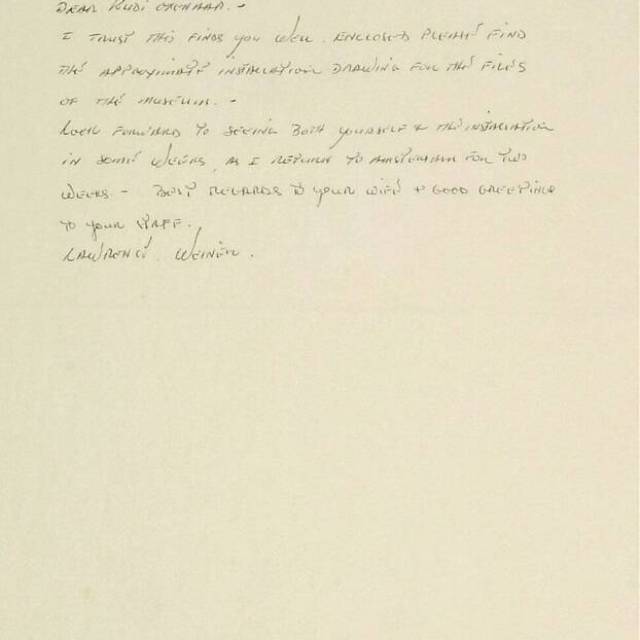 DEAR RUDI OXENAAR. -
I TRUST THIS FINDS YOU WELL. ENCLOSED PLEASE FIND
THE APPROXIMATE INSTALLATION DRAWING FOR THE FILES
OF THE MUSEUM. -
LOOK FORWARD TO SEEING BOTH YOURSELF & THE INSTALLATION
IN SOME WEEKS, AS I RETURN TO AMSTERDAM FOR TWO
WEEKS - BEST REGARDS TO YOUR WIFE + GOOD GREETINGS
TO YOUR STAFF.
LAWRENCE WEINER.